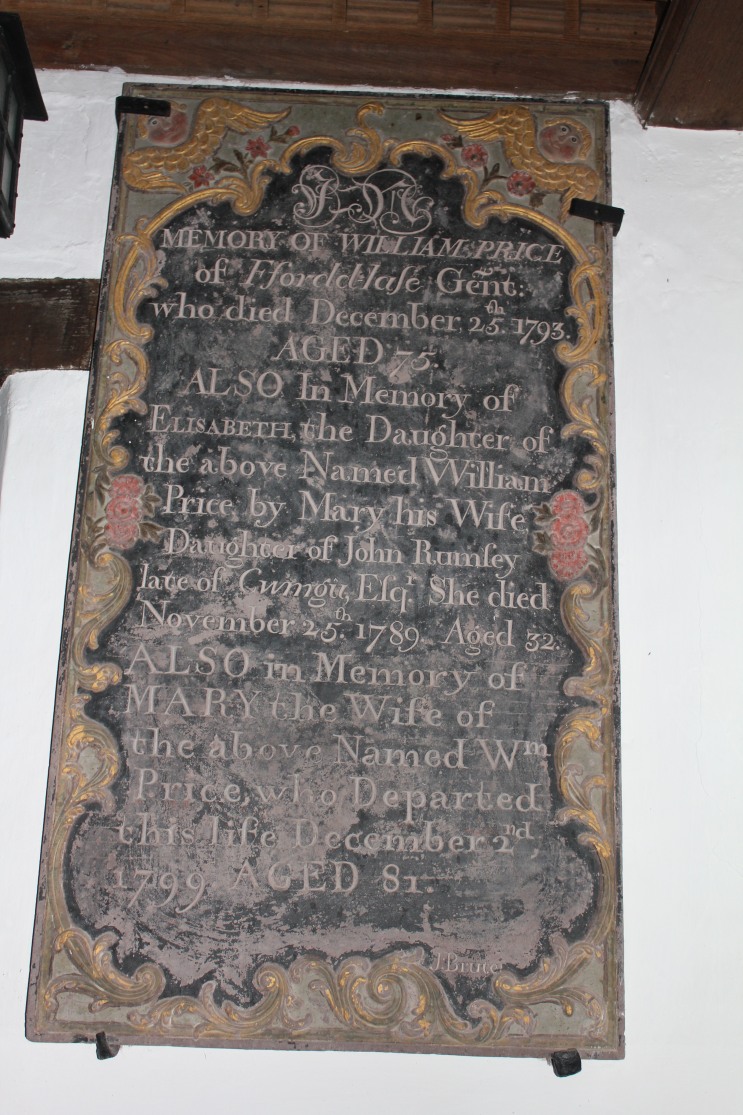 In
MEMORY OF WILLIAM PRICE
of Ffordd-lase Gent:
who died December 25.th 1793.
AGED 75.
ALSO In Memory of
ELISABETH, the Daughter of
the above Named William
Price by Mary his Wife
Daughter of John Rumsey
late of Cwmgu, Esq.r She died
November 25.th 1789. Aged 32.
ALSO in Memory of
MARY the Wife of
the above Named Wm
Price, who Departed
this life December 2nd,
1799 AGED 81.
J Brute